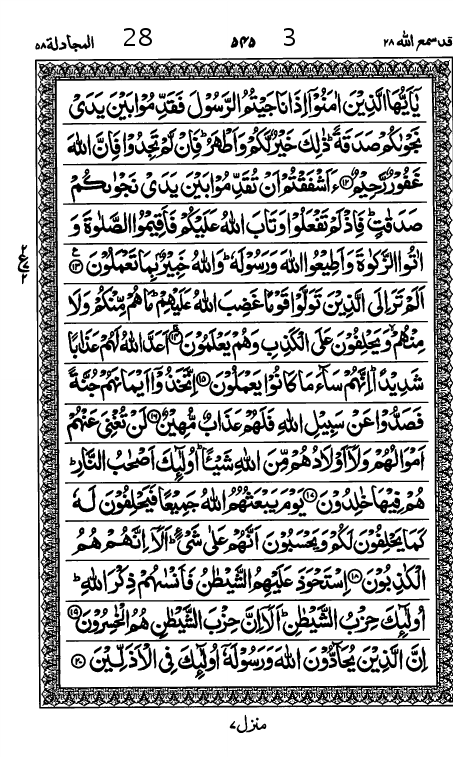 قد سمع الله ٢٨ 3 ٥٤٥ 28 المجادلة ٥٨
يٰۤاَيُّهَا الَّذِيۡنَ اٰمَنُوۡۤا اِذَا نَاجَيۡتُمُ الرَّسُوۡلَ فَقَدِّمُوۡا بَيۡنَ يَدَىۡ
نَجۡوٰٮكُمۡ صَدَقَةً ؕ ذٰلِكَ خَيۡرٌ لَّكُمۡ وَاَطۡهَرُ ؕ فَاِنۡ لَّمۡ تَجِدُوۡا فَاِنَّ اللّٰهَ
غَفُوۡرٌ رَّحِيۡمٌ ﴿۱۲﴾ ءَاَشۡفَقۡتُمۡ اَنۡ تُقَدِّمُوۡا بَيۡنَ يَدَىۡ نَجۡوٰٮكُمۡ
صَدَقٰتٍ ؕ فَاِذۡ لَمۡ تَفۡعَلُوۡا وَتَابَ اللّٰهُ عَلَيۡكُمۡ فَاَقِيۡمُوا الصَّلٰوةَ وَ
اٰتُوا الزَّكٰوةَ وَاَطِيۡعُوا اللّٰهَ وَرَسُوۡلَهٗ ؕ وَاللّٰهُ خَبِيۡرٌۢ بِمَا تَعۡمَلُوۡنَ ﴿۱۳﴾
ع ٢ ٢
اَلَمۡ تَرَ اِلَى الَّذِيۡنَ تَوَلَّوۡا قَوۡمًا غَضِبَ اللّٰهُ عَلَيۡهِمۡ ؕ مَا هُمۡ مِّنۡكُمۡ وَلَا
مِنۡهُمۡ ۙ وَيَحۡلِفُوۡنَ عَلَى الۡكَذِبِ وَهُمۡ يَعۡلَمُوۡنَ ﴿۱۴﴾ اَعَدَّ اللّٰهُ لَهُمۡ عَذَابًا
شَدِيۡدًا ؕ اِنَّهُمۡ سَآءَ مَا كَانُوۡا يَعۡمَلُوۡنَ ﴿۱۵﴾ اِتَّخَذُوۡۤا اَيۡمَانَهُمۡ جُنَّةً
فَصَدُّوۡا عَنۡ سَبِيۡلِ اللّٰهِ فَلَهُمۡ عَذَابٌ مُّهِيۡنٌ ﴿۱۶﴾ لَنۡ تُغۡنِىَ عَنۡهُمۡ
اَمۡوَالُهُمۡ وَلَاۤ اَوۡلَادُهُمۡ مِّنَ اللّٰهِ شَيۡــًٔا ؕ اُولٰٓٮِٕكَ اَصۡحٰبُ النَّارِ ؕ
هُمۡ فِيۡهَا خٰلِدُوۡنَ ﴿۱۷﴾ يَوۡمَ يَبۡعَثُهُمُ اللّٰهُ جَمِيۡعًا فَيَحۡلِفُوۡنَ لَهٗ
كَمَا يَحۡلِفُوۡنَ لَكُمۡ وَيَحۡسَبُوۡنَ اَنَّهُمۡ عَلٰى شَىۡءٍ ؕ اَلَاۤ اِنَّهُمۡ هُمُ
الۡكٰذِبُوۡنَ ﴿۱۸﴾ اِسۡتَحۡوَذَ عَلَيۡهِمُ الشَّيۡطٰنُ فَاَنۡسٰٮهُمۡ ذِكۡرَ اللّٰهِ ؕ
اُولٰٓٮِٕكَ حِزۡبُ الشَّيۡطٰنِ ؕ اَلَاۤ اِنَّ حِزۡبَ الشَّيۡطٰنِ هُمُ الۡخٰسِرُوۡنَ ﴿۱۹﴾
اِنَّ الَّذِيۡنَ يُحَآدُّوۡنَ اللّٰهَ وَرَسُوۡلَهٗۤ اُولٰٓٮِٕكَ فِى الۡاَذَلِّيۡنَ ﴿۲۰﴾
منزل ٧